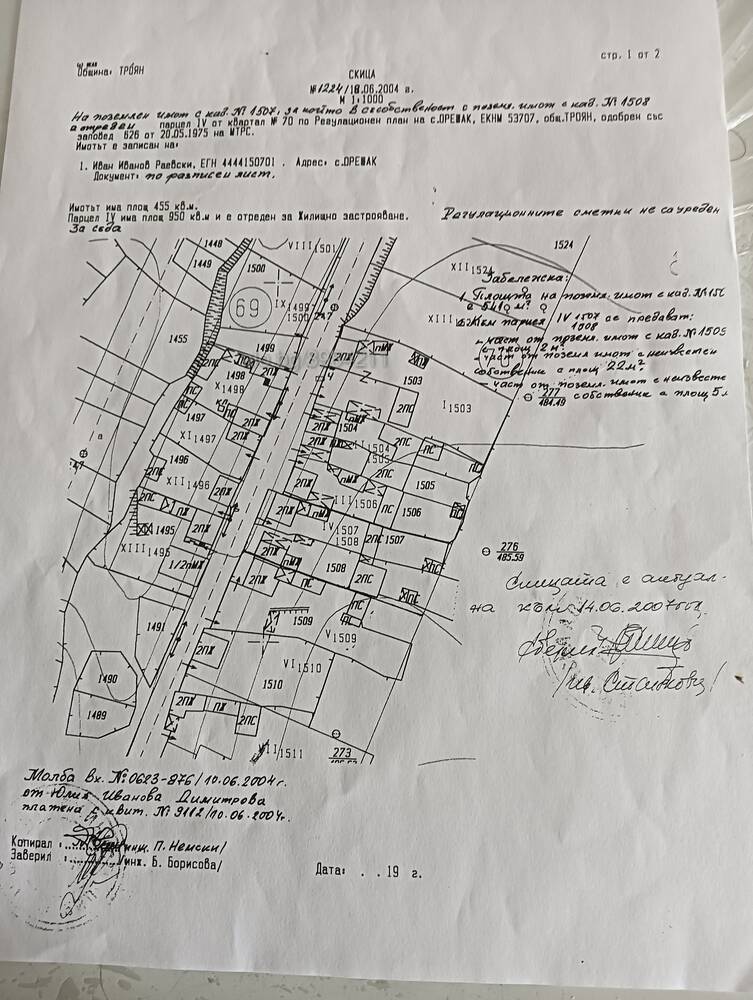 стр. 1 от 2
Община: ТРОЯН
СКИЦА
№1224/18.06.2004 г.
М 1:1000
На поземлен имот с кад. № 1507, за който в съсобственост с позем. имот с кад. № 1508
е отреден парцел IV от квартал № 70 по Регулационен план на с.ОРЕШАК, ЕКНМ 53707, общ.ТРОЯН, одобрен със
заповед 626 от 20.05.1975 на МТРС.
Имотът е записан на:
1. Иван Иванов Раевски, ЕГН 4444150701 . Адрес: с.ОРЕШАК
Документ: по разписен лист.
Имотът има площ 455 кв.м.
Парцел IV има площ 950 кв.м и е отреден за Жилищно застрояване.
Регулационните сметки не са уредени
За сега
1448
VIII 1501
1524
1449
1500
XII 1524
Забележка:
1. Площта на позем. имот с кад. №
е 541 м²
IX 1499
1500
69
XIII
Към парцел IV 1507
1508
се предават:
- част от позем. имот с кад. № 1509
с площ 2 м²
- част от позем имот с неизвестен
собственик с площ 22 м²
- част от позем. имот с неизвесте
собственик с площ 5 м
1455
1499
2ПЖ
пМЖ
1503
I 1503
277
484.49
1498
X 1498
2ПС
ПС
XI 1497
1497
2ПЖ
1504
II 1504
1505
2ПС
ПС
ПС
1496
XII 1496
2ПС
2ПЖ
ПЖ
2ПЖ
пМЖ
2ПС
1505
III 1506
ПС
1506
1495
XIII 1495
2ПЖ
1/2пМЖ
2ПЖ
IV 1507
1508
2ПС
1507
276
485.59
2ПЖ
пМЖ
1508
2ПС
ПС
ПС
2ПЖ
ПС
ПС
ПС
Скицата е актуал-
на към 14.06.2007год
1491
1509
V 1509
2ПЖ
VI 1510
1490
1510
1489
2ПЖ
ПЖ
2ПС
273
1511
Молба Вх. №0623-876/10.06.2004г.
от Юлия Иванова Димитрова
платена с квит. № 9112/10.06.2004г.
Копирал :
/инж. П. Немски/
Заверил :
/инж. Б. Борисова/
Дата: . .19 г.